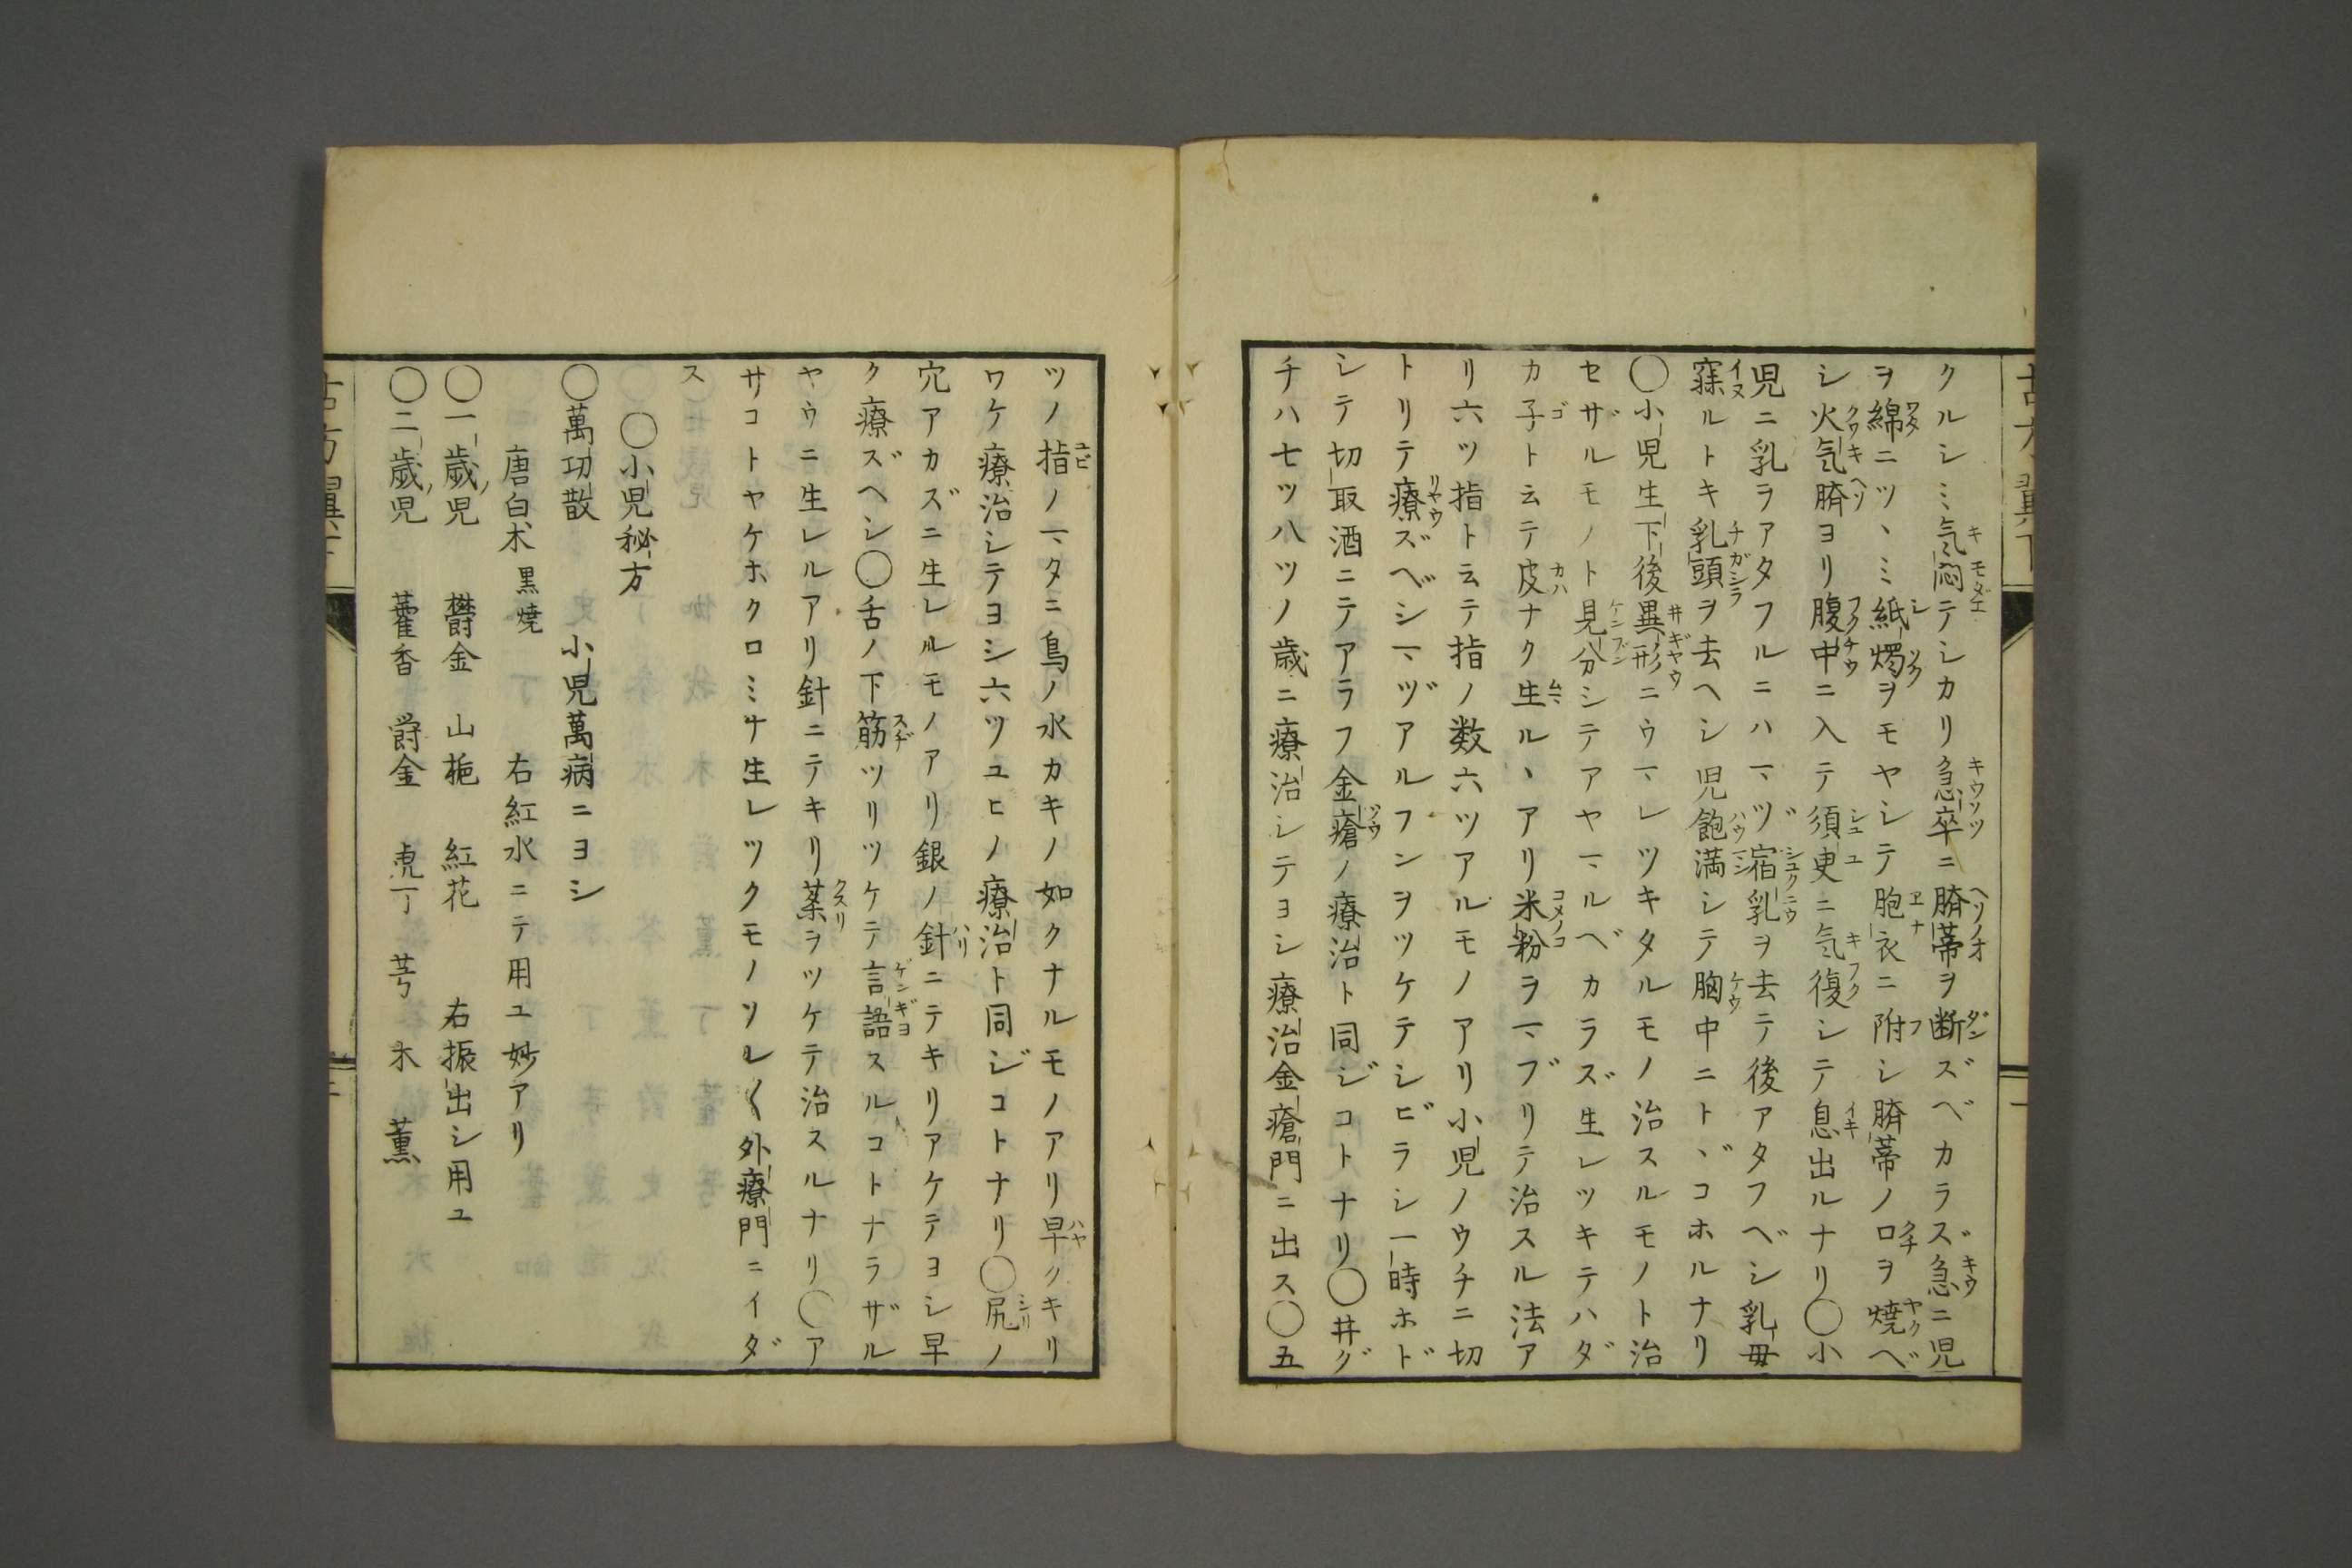 クルシミ気悶テシカリ急卒ニ臍蒂ヲ断ズベカラズ急ニ児
ヲ綿ニツヽミ紙燭ヲモヤシテ胞衣ニ附シ臍蒂ノ口ヲ焼ベ
シ火気臍ヨリ腹中ニ入テ須臾ニ気復シテ息出ルナリ〇小
児ニ乳ヲアタフルニハマヅ宿乳ヲ去テ後アタフベシ乳母
寐ルトキ乳頭ヲ去ヘシ児飽満シテ胸中ニトヾコホルナリ
〇小児生下後異形ニウマレツキタルモノ治スルモノト治
セザルモノト見分シテアヤマルベカラズ生レツキテハダ
カ子ト云テ皮ナク生ルヽアリ米粉ヲマブリテ治スル法ア
リ六ツ指ト云テ指ノ数六ツアルモノアリ小児ノウチニ切
トリテ療ズベシマヅアルフンヲツケテシビラシ一時ホド
シテ切取酒ニテアラフ金瘡ノ療治ト同ジコトナリ〇井グ
チハ七ツ八ツノ歳ニ療治シテヨシ療治金瘡門ニ出ス〇五
ツノ指ノマタニ鳥ノ水カキノ如クナルモノアリ早クキリ
ワケ療治シテヨシ六ツユヒノ療治ト同ジコトナリ〇尻ノ
穴アカズニ生レルモノアリ銀ノ針ニテキリアケテヨシ早
ク療ズヘシ〇舌ノ下筋ツリツケテ言語スルコトナラザル
ヤウニ生レルアリ針ニテキリ薬ヲツケテ治スルナリ〇ア
サコトヤケホクロミナ生レツクモノソレ〱外療門ニイダ
ス
〇小児秘方
〇萬功散　小児萬病ニヨシ
唐白朮黒焼　右紅水ニテ用ユ妙アリ
〇一歳児　欝金　山梔　紅花　右振出シ用ユ
〇二歳児　藿香　欝金　丁　芎　木　薫